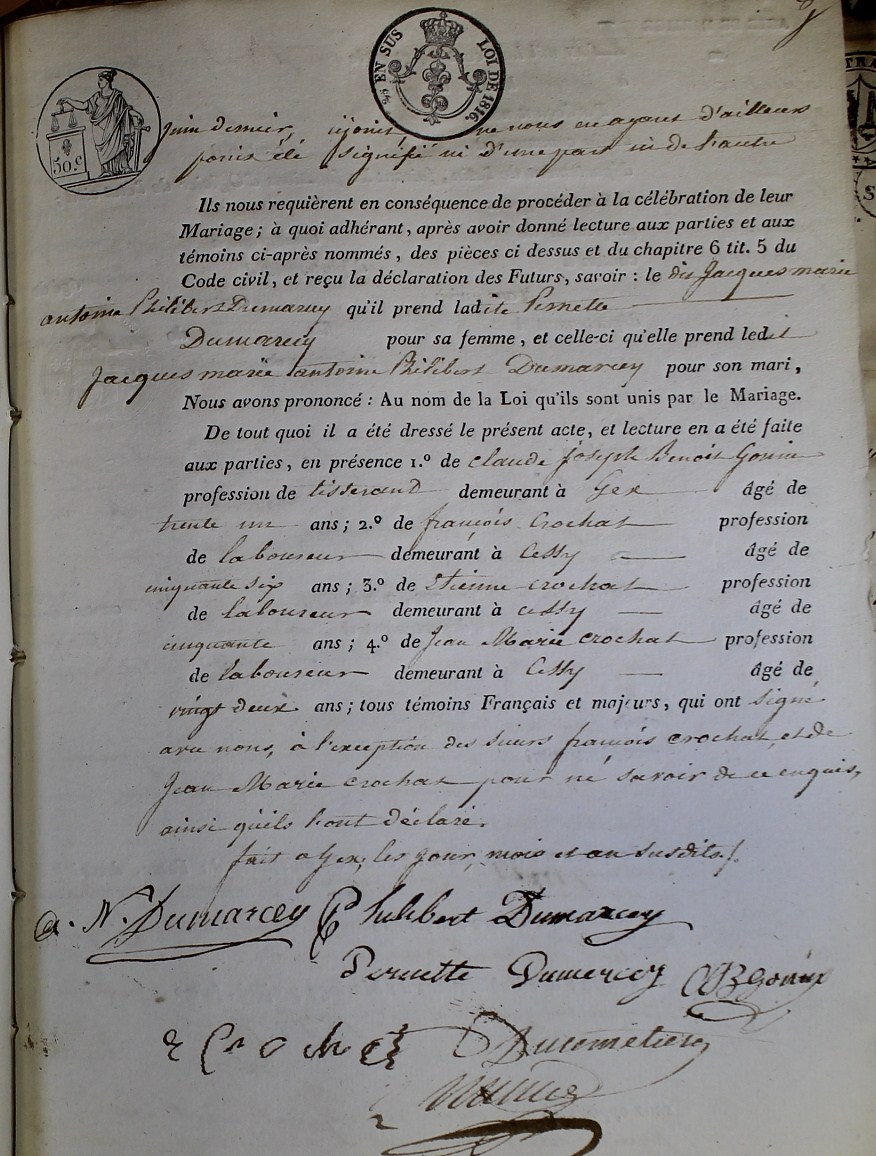 EN SUS LOI DE 1816.
50.c
juin dernier, ne nous en ayant d'ailleurs
point été signifié ni d'une part ni de l'autre
Ils nous requièrent en conséquence de procéder à la célébration de leur
Mariage ; à quoi adhérant, après avoir donné lecture aux parties et aux
témoins ci-après nommés, des pièces ci dessus et du chapitre 6 tit. 5 du
Code civil, et reçu la déclaration des Futurs, savoir : le dit Jacques marie
antoine Philibert Dumarcey qu'il prend ladite Pernette
Dumarcey pour sa femme, et celle-ci qu'elle prend ledit
Jacques marie antoine Philibert Dumarcey pour son mari,
Nous avons prononcé : Au nom de la Loi qu'ils sont unis par le Mariage.
De tout quoi il a été dressé le présent acte, et lecture en a été faite
aux parties, en présence 1.º de claude joseph Benoit Gonin
profession de tisserand demeurant à Gex âgé de
trente un ans ; 2.º de françois Crochat profession
de laboureur demeurant à Cessy âgé de
cinquante six ans ; 3.º de Etienne crochat profession
de laboureur demeurant à cessy âgé de
cinquante ans ; 4.º de Jean Marie crochat profession
de laboureur demeurant à Cessy âgé de
vingt deux ans ; tous témoins Français et majeurs, qui ont signé
avec nous, à l'exception des sieurs françois crochat, et de
Jean Marie crochat pour ne savoir de ce enquis,
ainsi qu'ils l'ont déclaré.
fait a Gex, les jour, mois et an susdits.
N. Dumarcey Philibert Dumarcey
Pernette Dumercey
Ducimetiere